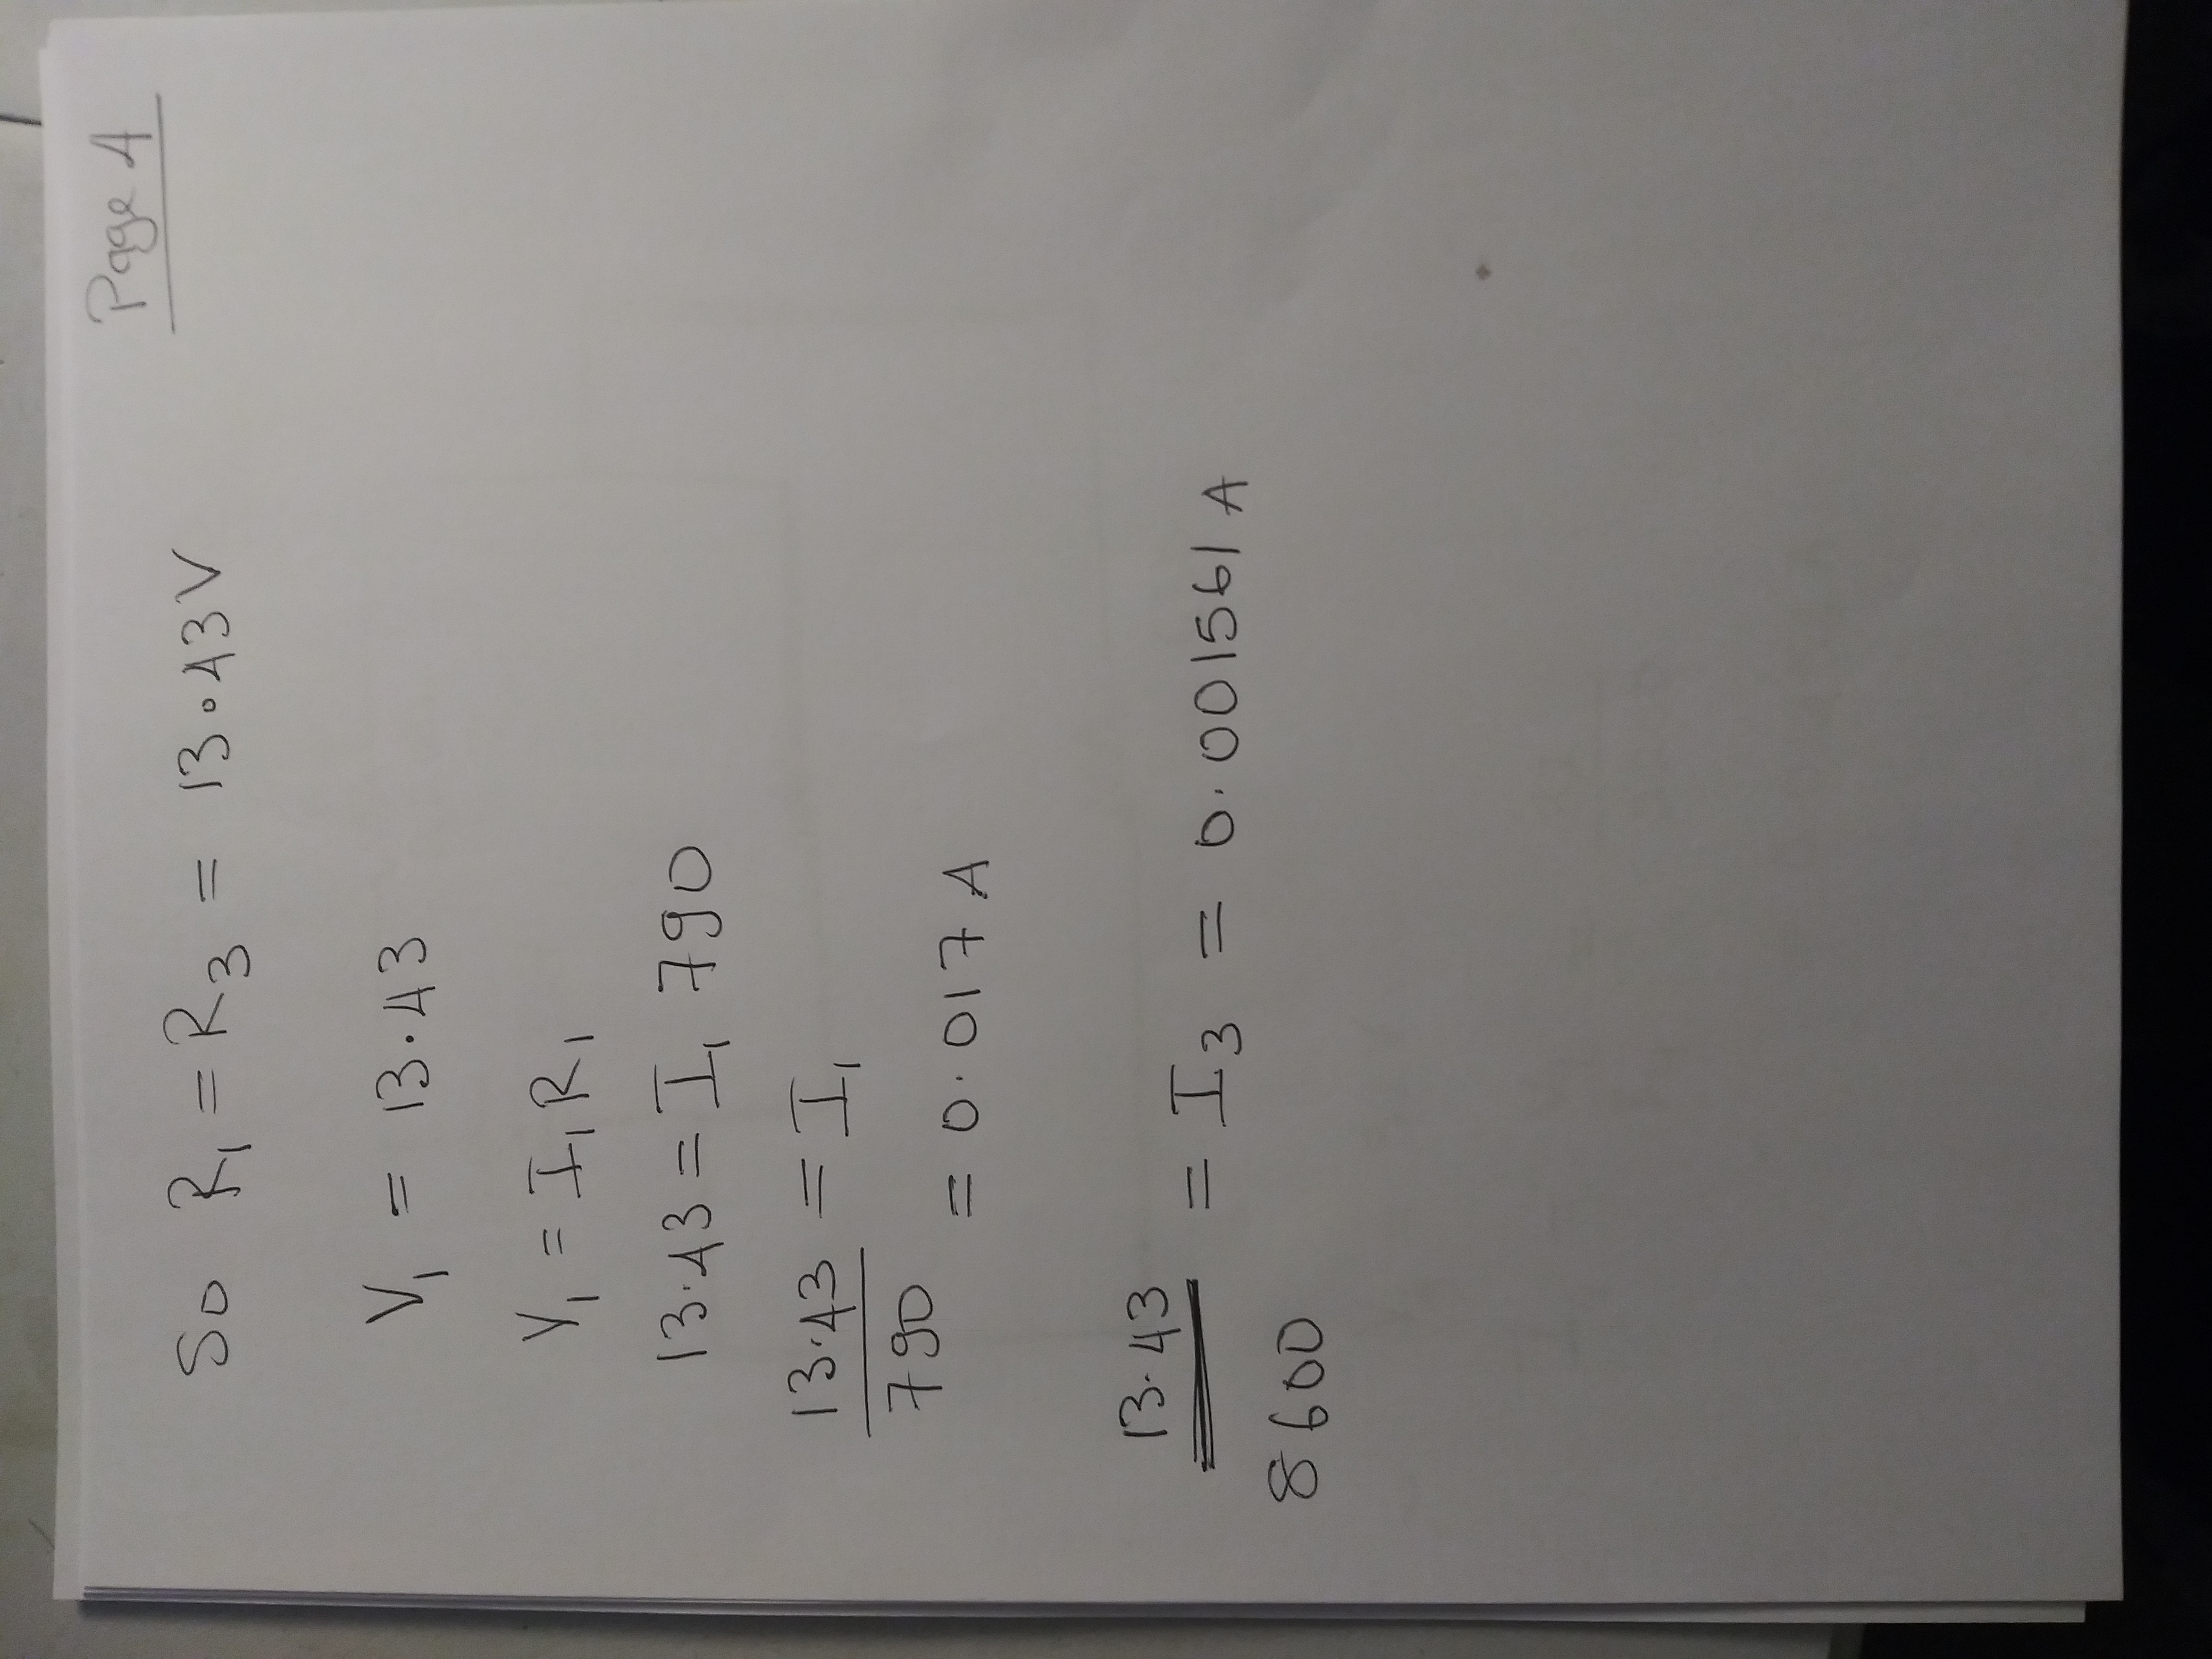 Page 4
So R₁ = R₃ = 13.43V
V₁ = 13.43
V₁ = I₁R₁
13.43 = I₁ 790
13.43 = I₁
790
= 0.017 A
13.43 = I₃ = 0.001561 A
8600